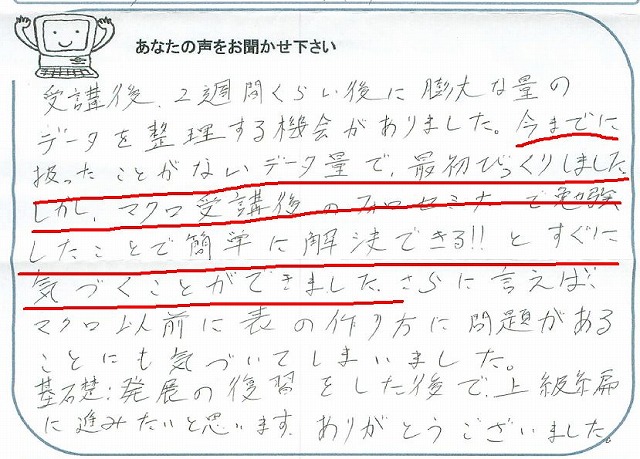 あなたの声をお聞かせ下さい
受講後、2週間くらい後に膨大な量の
データを整理する機会がありました。今までに
扱ったことがないデータ量で、最初びっくりしました。
しかし、マクロ受講後のフォローセミナーで勉強
したことで簡単に解決できる!!とすぐに
気づくことができました。さらに言えば、
マクロ以前に表の作り方に問題がある
ことにも気づいてしまいました。
基礎:発展の復習をした後で、上級編
に進みたいと思います。ありがとうございました。